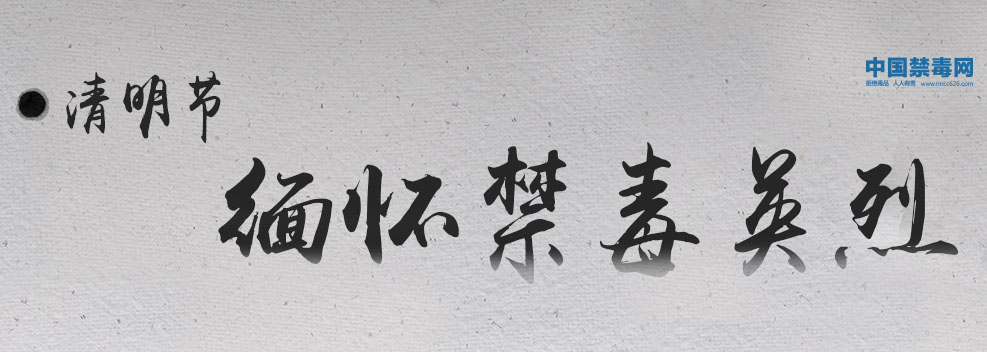 清明节
缅怀禁毒英烈
中国禁毒网
拒绝毒品 人人有责 www.nncc626.com